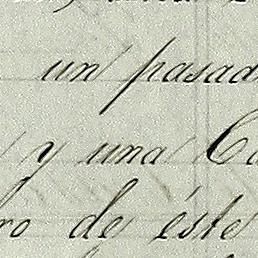 un pasad
y una Ca
ro de éste